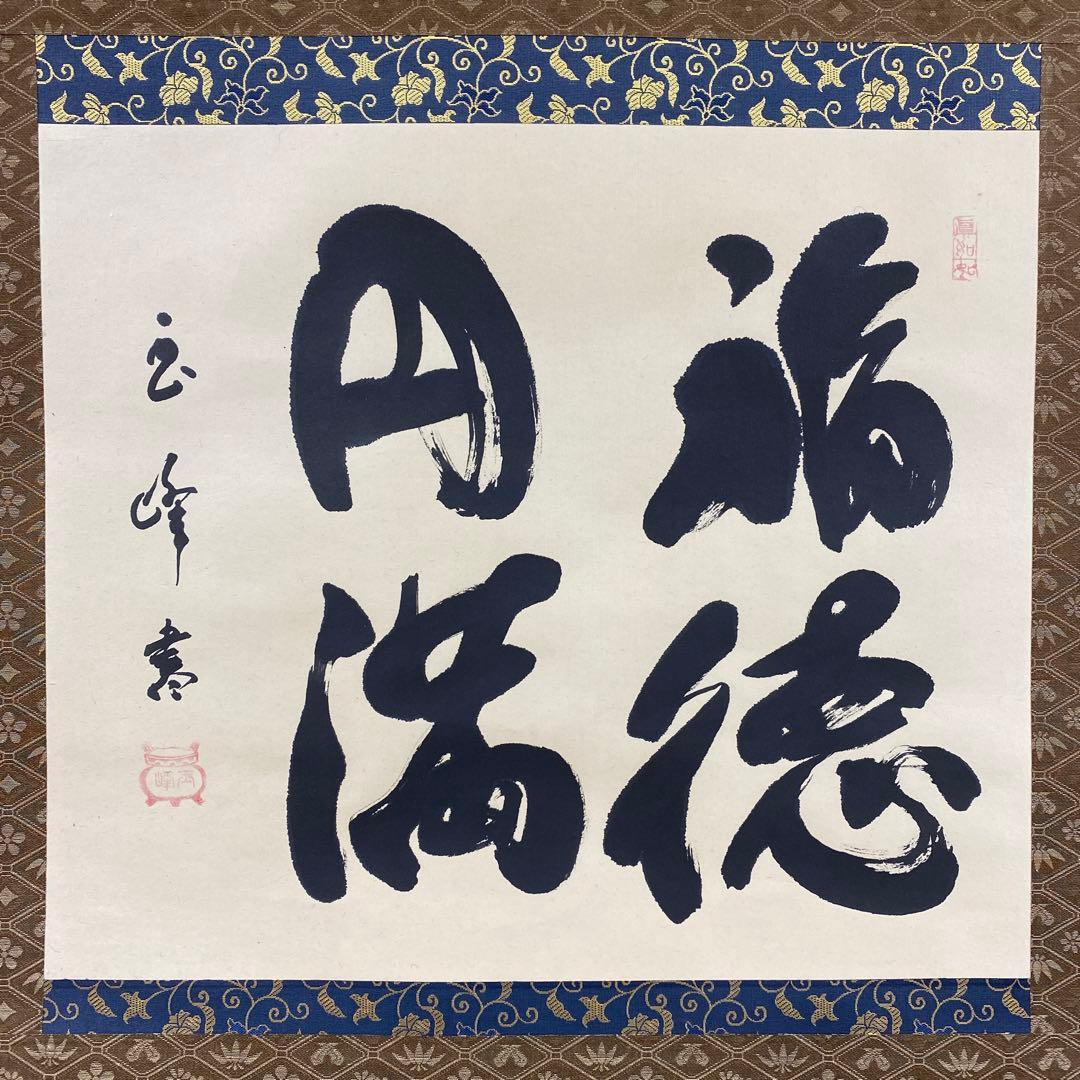 福徳
円満
玄峰書